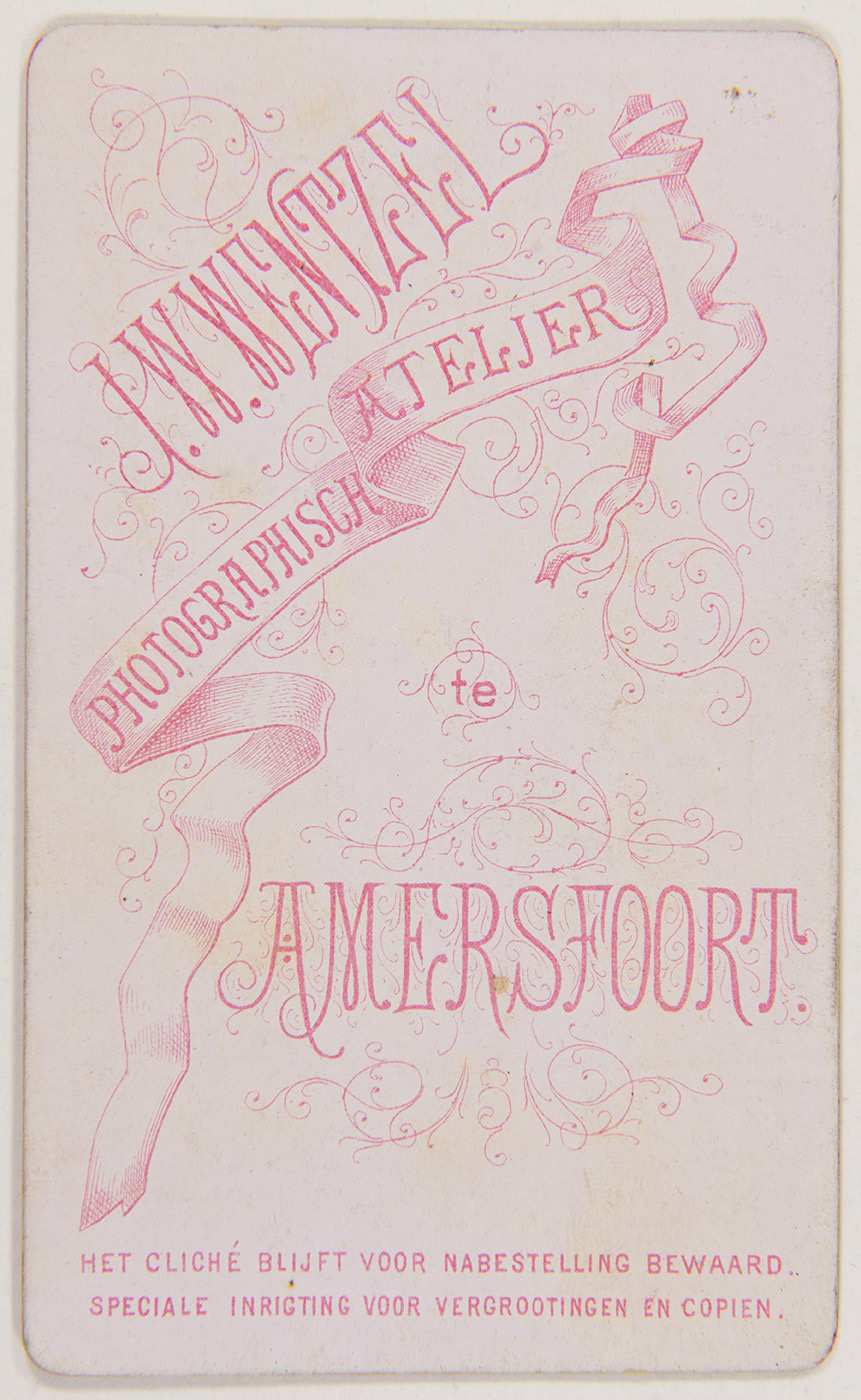 J.W. WENTZEL
PHOTOGRAPHISCH ATELJER
te
AMERSFOORT.
HET CLICHÉ BLIJFT VOOR NABESTELLING BEWAARD..
SPECIALE INRIGTING VOOR VERGROOTINGEN EN COPIEN.